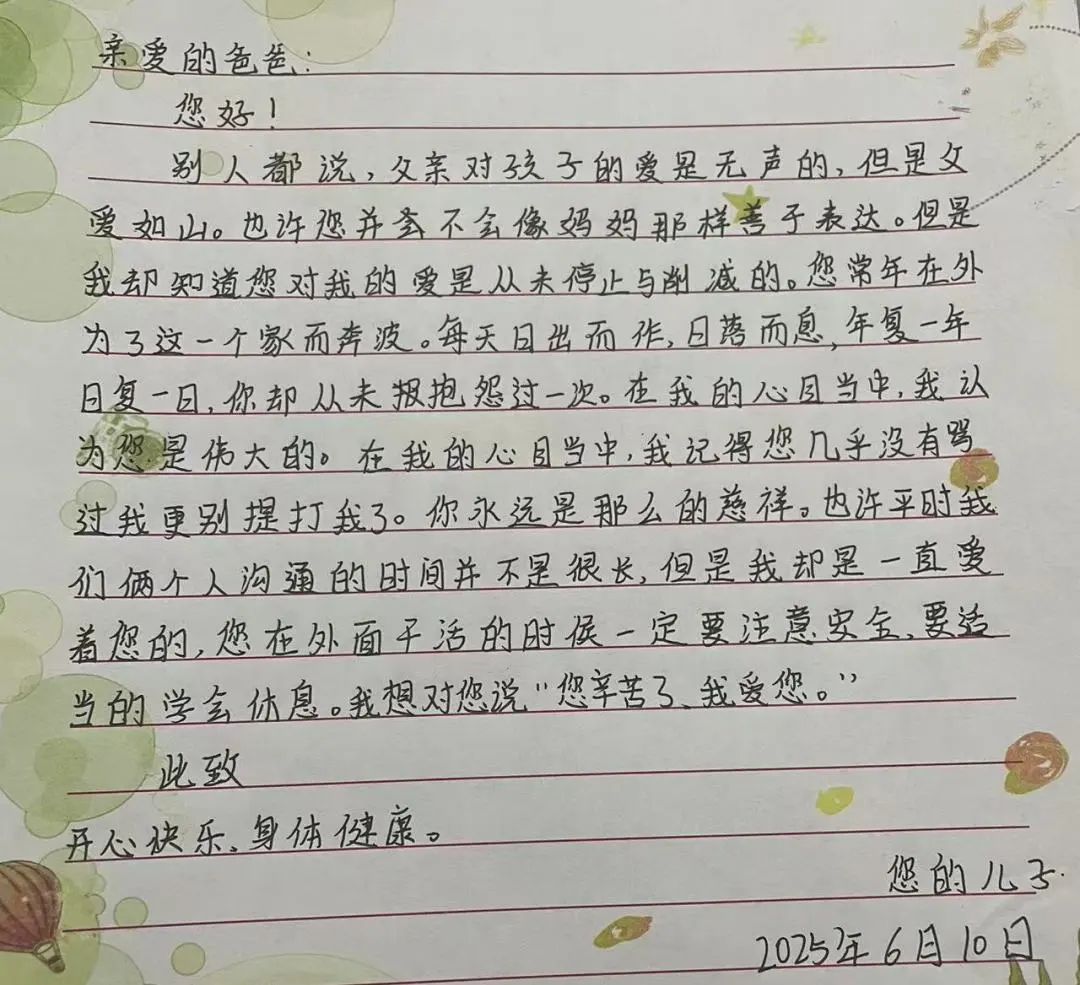 亲爱的爸爸:
您好!
别人都说,父亲对孩子的爱是无声的,但是父
爱如山。也许您并会不会像妈妈那样善于表达。但是
我却知道您对我的爱是从未停止与削减的。您常年在外
为了这一个家而奔波。每天日出而作,日落而息,年复一年
日复一日,你却从未报抱怨过一次。在我的心目当中,我认
为您是伟大的。在我的心目当中,我记得您几乎没有骂
过我更别提打我了。你永远是那么的慈祥。也许平时我
们俩个人沟通的时间并不是很长,但是我却是一直爱
着您的,您在外面干活的时候一定要注意安全、要适
当的学会休息。我想对您说“您辛苦了、我爱您。”
此致
开心快乐、身体健康。
您的儿子.
2025年6月10日